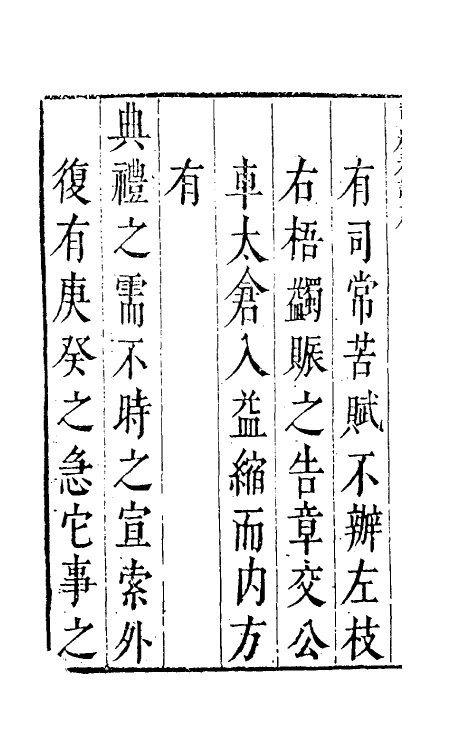 有司常苦賦不辦左枝
右梧蠲賑之告章交公
車太倉入益縮而内方
有
典禮之需不時之宣索外
復有庚癸之急它事之